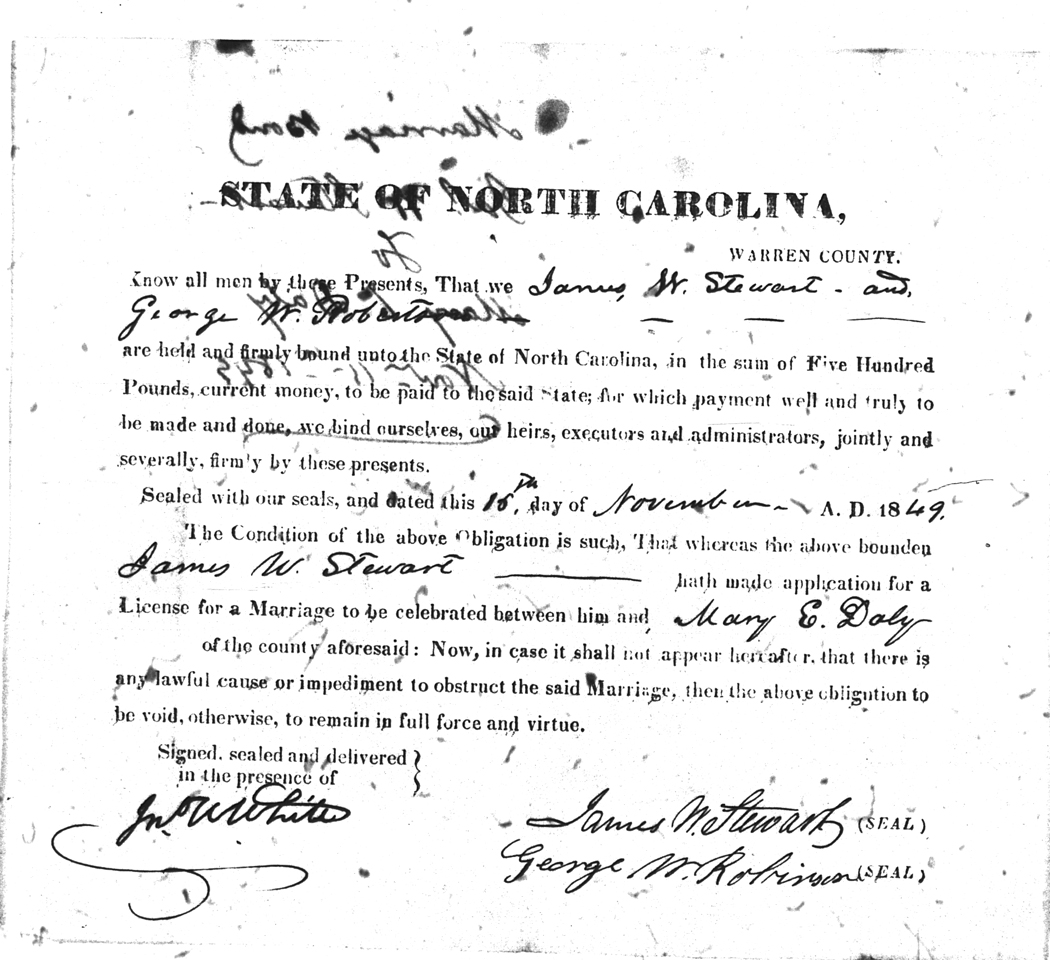 Marriage Bond
STATE OF NORTH CAROLINA,
To
WARREN COUNTY.
Know all men by these Presents, That we James W. Stewart - and
George W. Robertson
are held and firmly bound unto the State of North Carolina, in the sum of Five Hundred
Pounds, current money, to be paid to the said State; for which payment well and truly to
be made and done, we bind ourselves, our heirs, executors and administrators, jointly and
severally, firmly by these presents.
Sealed with our seals, and dated this 15th, day of November A. D. 1849.
The Condition of the above Obligation is such, That whereas the above bounden
James W. Stewart hath made application for a
License for a Marriage to be celebrated between him and Mary E. Daly
of the county aforesaid: Now, in case it shall not appear hereafter, that there is
any lawful cause or impediment to obstruct the said Marriage, then the above obligation to
be void, otherwise, to remain in full force and virtue.
Signed, sealed and delivered }
in the presence of
Jno W White
James W. Stewart (SEAL)
George W. Robinson (SEAL)